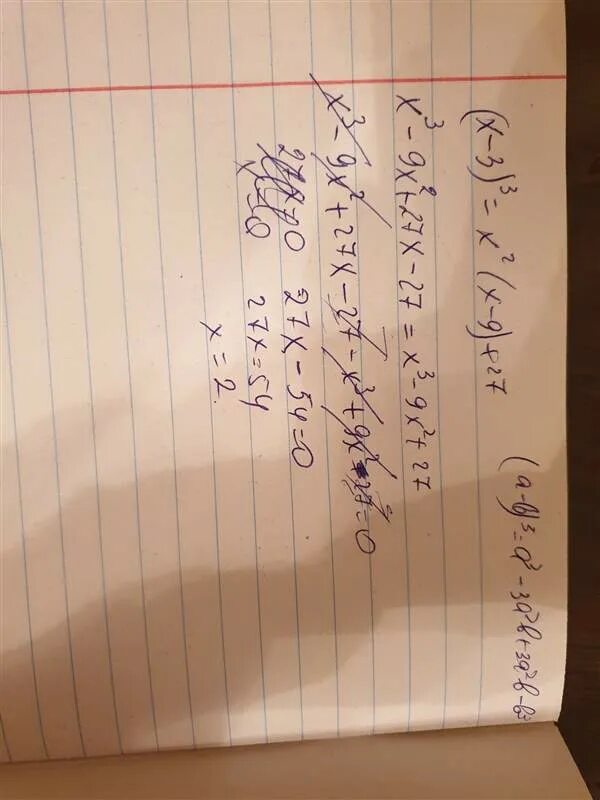 (x-3)³ = x² (x-9)+27
(a-b)³ = a³ - 3a²b + 3a²b - b³
x³ - 9x² + 27x - 27 = x³ - 9x² + 27
x³ - 9x² + 27x - 27 - x³ + 9x² - 27 = 0
27x - 54 = 0
27x = 54
x = 2